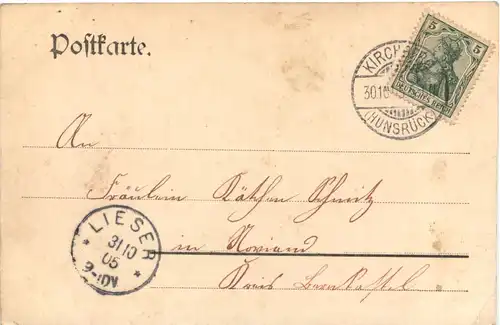 Postkarte.
5 5
DEUTSCHES REICH
KIRCH
30.10
(HUNSRÜCK)
An
Fräulein Käthchen Schmitz
in Noviand
Kreis Bernkastel
* LIESER *
31 10
05
9-10V